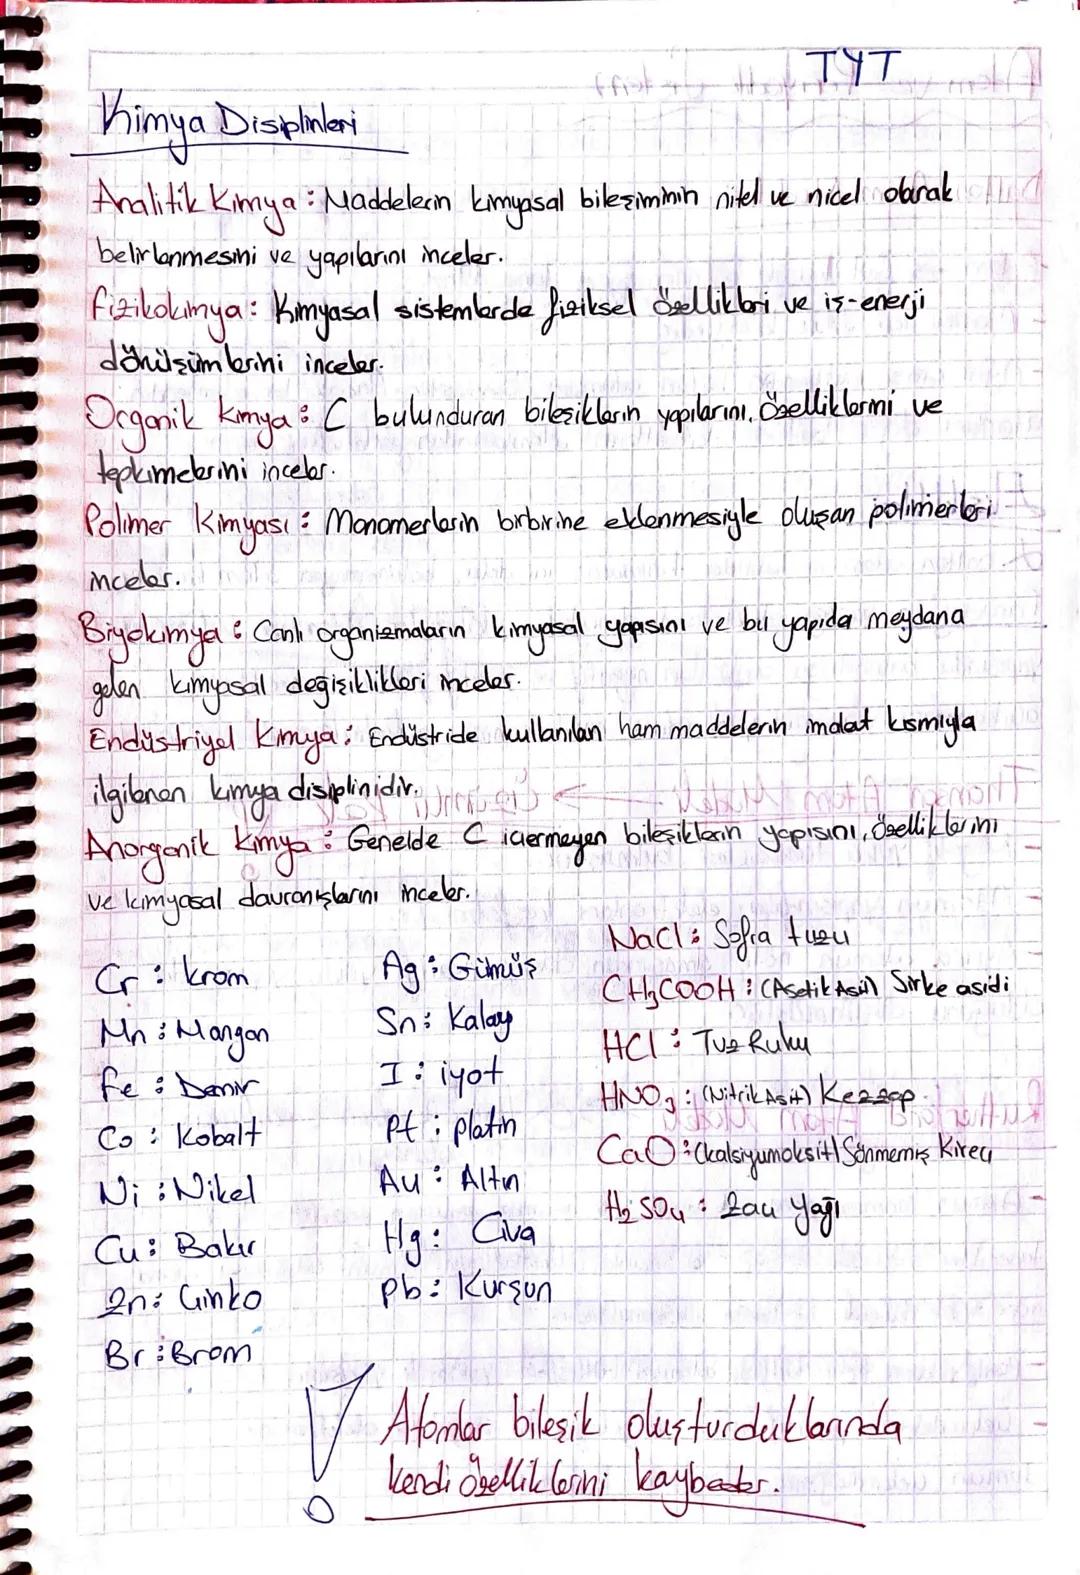 TYT
Kimya Disiplinleri
Analitik Kimya : Maddelerin kimyasal bileşiminin nitel ve nicel olarak
belirlenmesini ve yapılarını inceler.
Fizikokimya : Kimyasal sistemlerde fiziksel özellikleri ve iş-enerji
dönüşümlerini inceler.
Organik Kimya : C bulunduran bileşiklerin yapılarını, özelliklerini ve
tepkimelerini inceler.
Polimer Kimyası : Monomerlerin birbirine eklenmesiyle oluşan polimerleri
inceler.
Biyokimya : Canlı organizmaların kimyasal yapısını ve bu yapıda meydana
gelen kimyasal değişiklikleri inceler.
Endüstriyel Kimya : Endüstride kullanılan ham maddelerin imalat kısmıyla
ilgilenen kimya disiplinidir.
Anorganik Kimya : Genelde C içermeyen bileşiklerin yapısını, özelliklerini
ve kimyasal davranışlarını inceler.
Cr : krom
Mn : Mangan
Fe : Demir
Co : Kobalt
Ni : Nikel
Cu : Bakır
Zn : Çinko
Br : Brom
Ag : Gümüş
Sn : Kalay
I : iyot
Pt : platin
Au : Altın
Hg : Civa
Pb : Kurşun
NaCl : Sofra tuzu
CH₃COOH : (Asetik Asit) Sirke asidi
HCl : Tuz Ruhu
HNO₃ : (Nitrik Asit) Kezzap
CaO : (kalsiyumoksit) Sönmemiş Kireç
H₂SO₄ : Zaç Yağı
! Atomlar bileşik oluşturduklarında
kendi özelliklerini kaybeder.